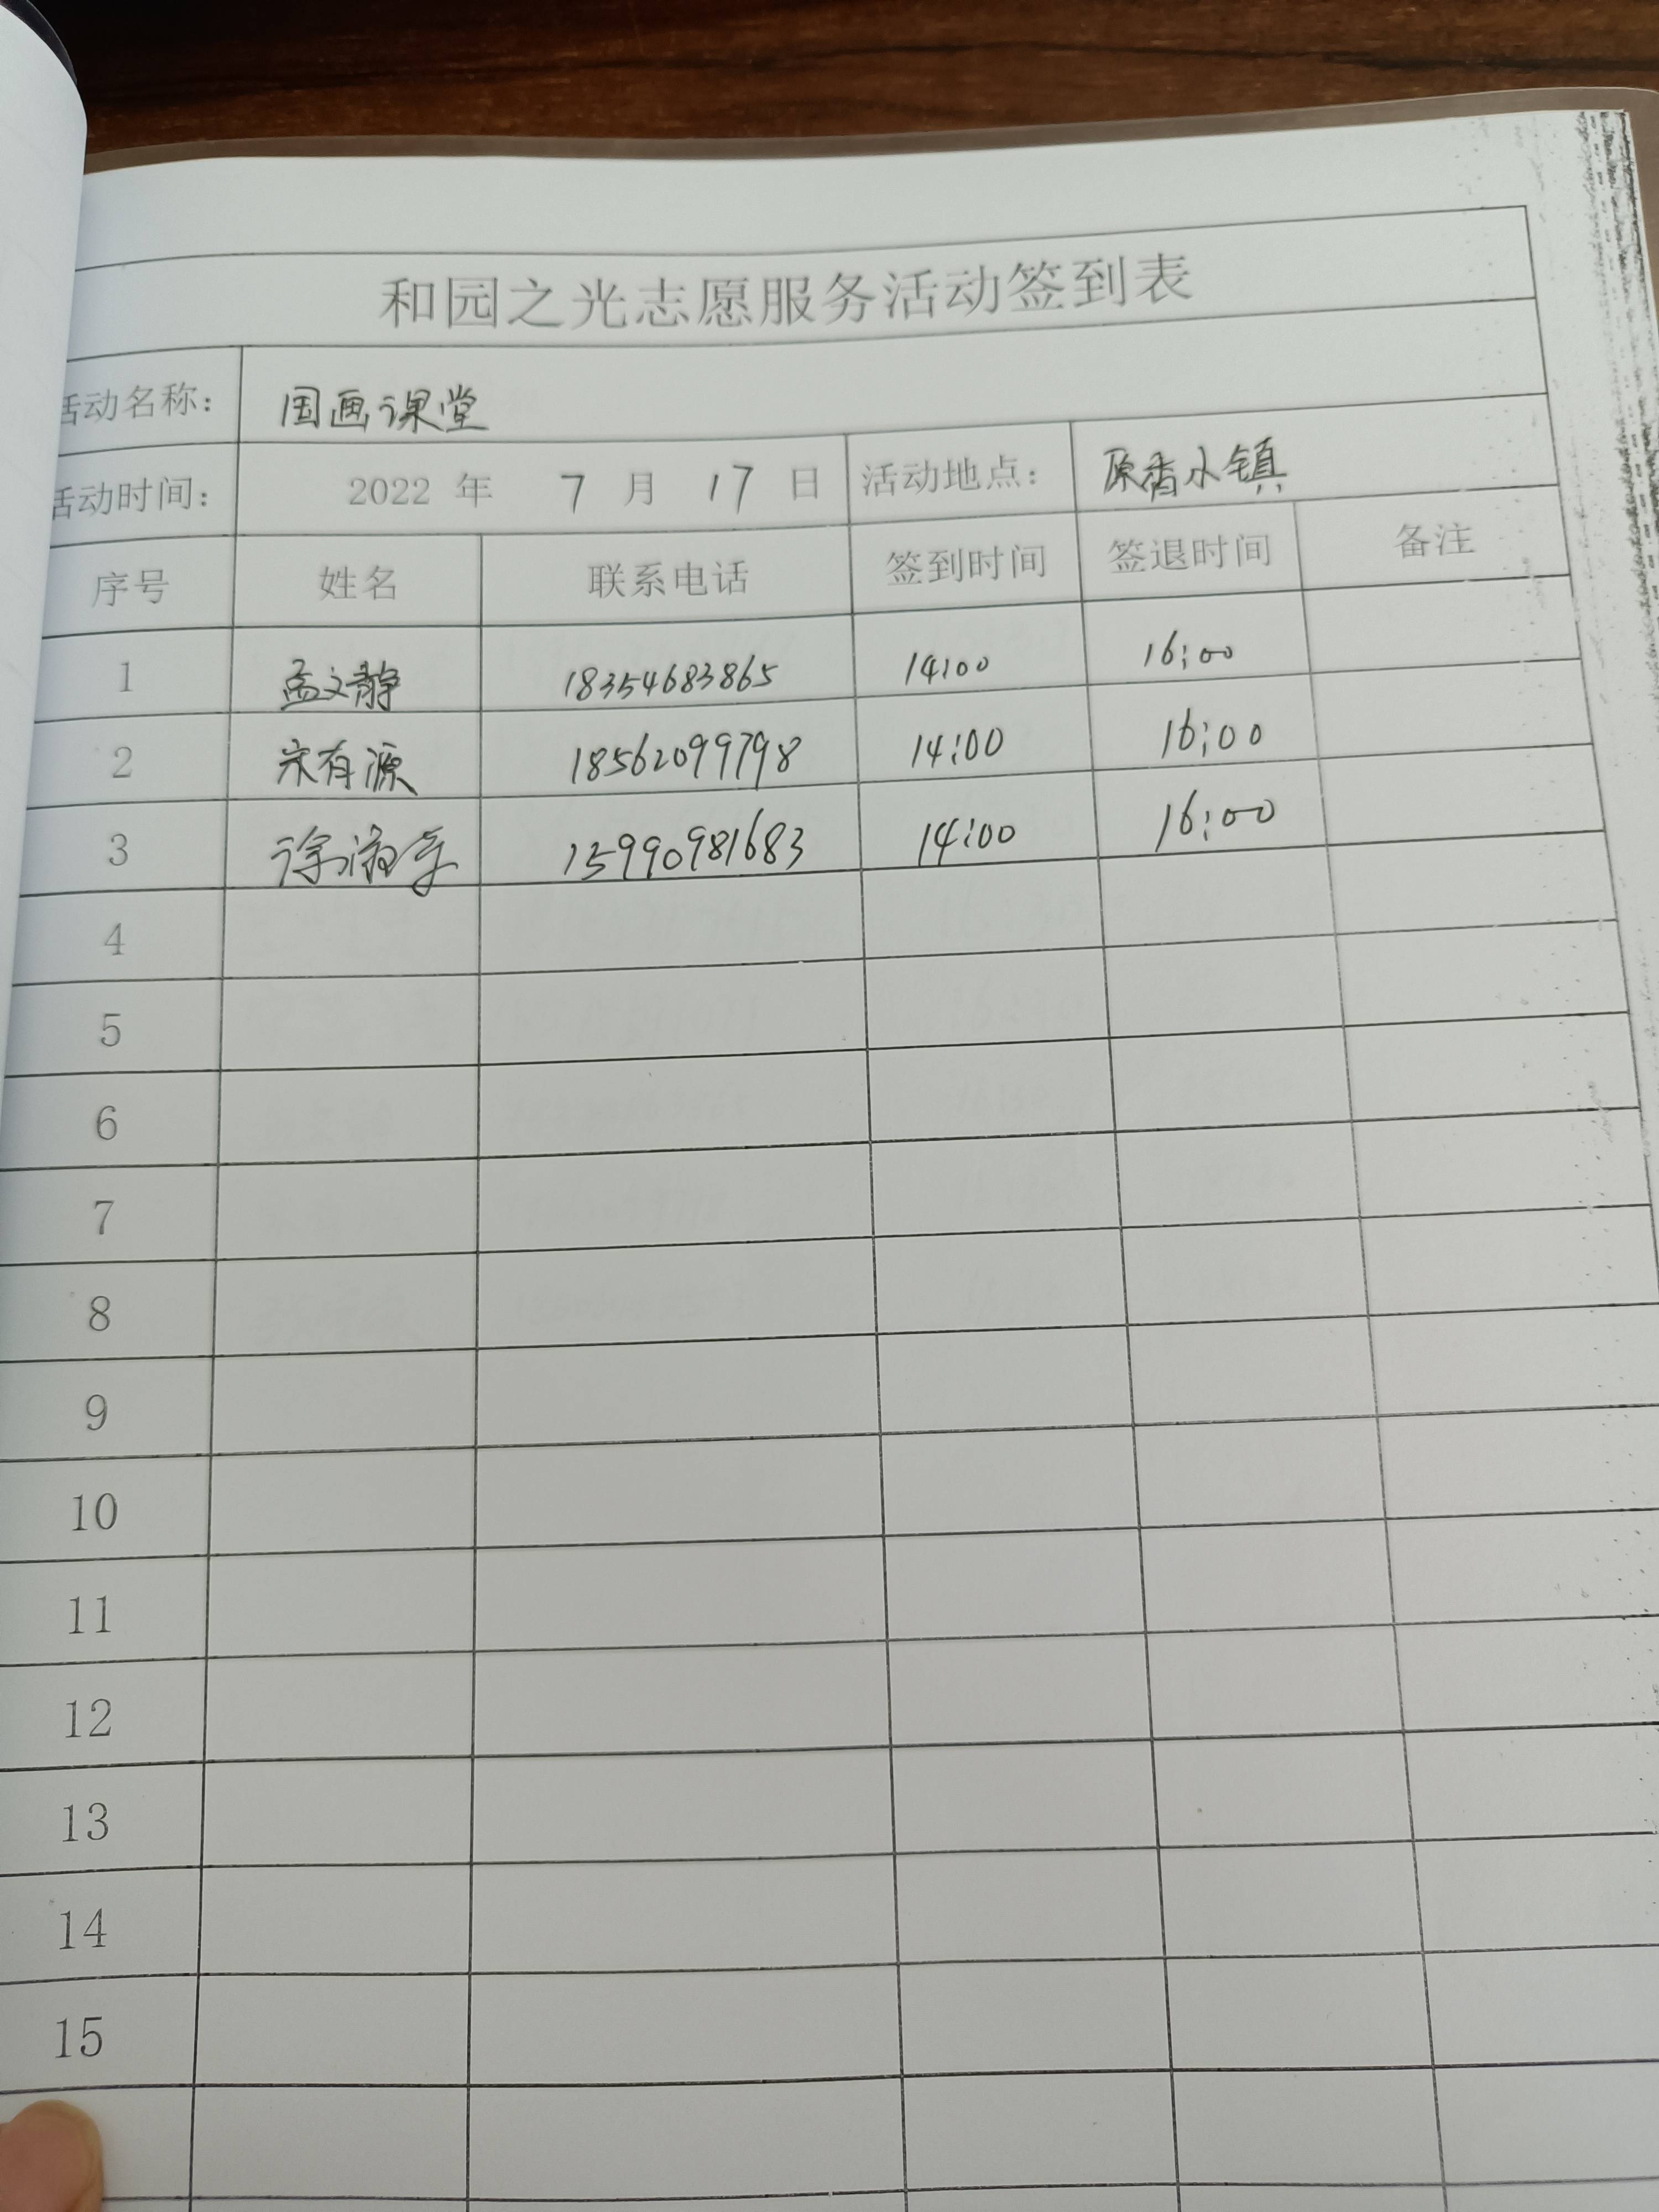 和园之光志愿服务活动签到表
活动名称： 国画课堂
活动时间： 2022 年 7 月 17 日 活动地点： 原香小镇
序号 姓名 联系电话 签到时间 签退时间 备注
1 孟文静 18354683865 14:00 16:00
2 宋有源 18562099798 14:00 16:00
3 徐 15990981683 14:00 16:00
4
5
6
7
8
9
10
11
12
13
14
15